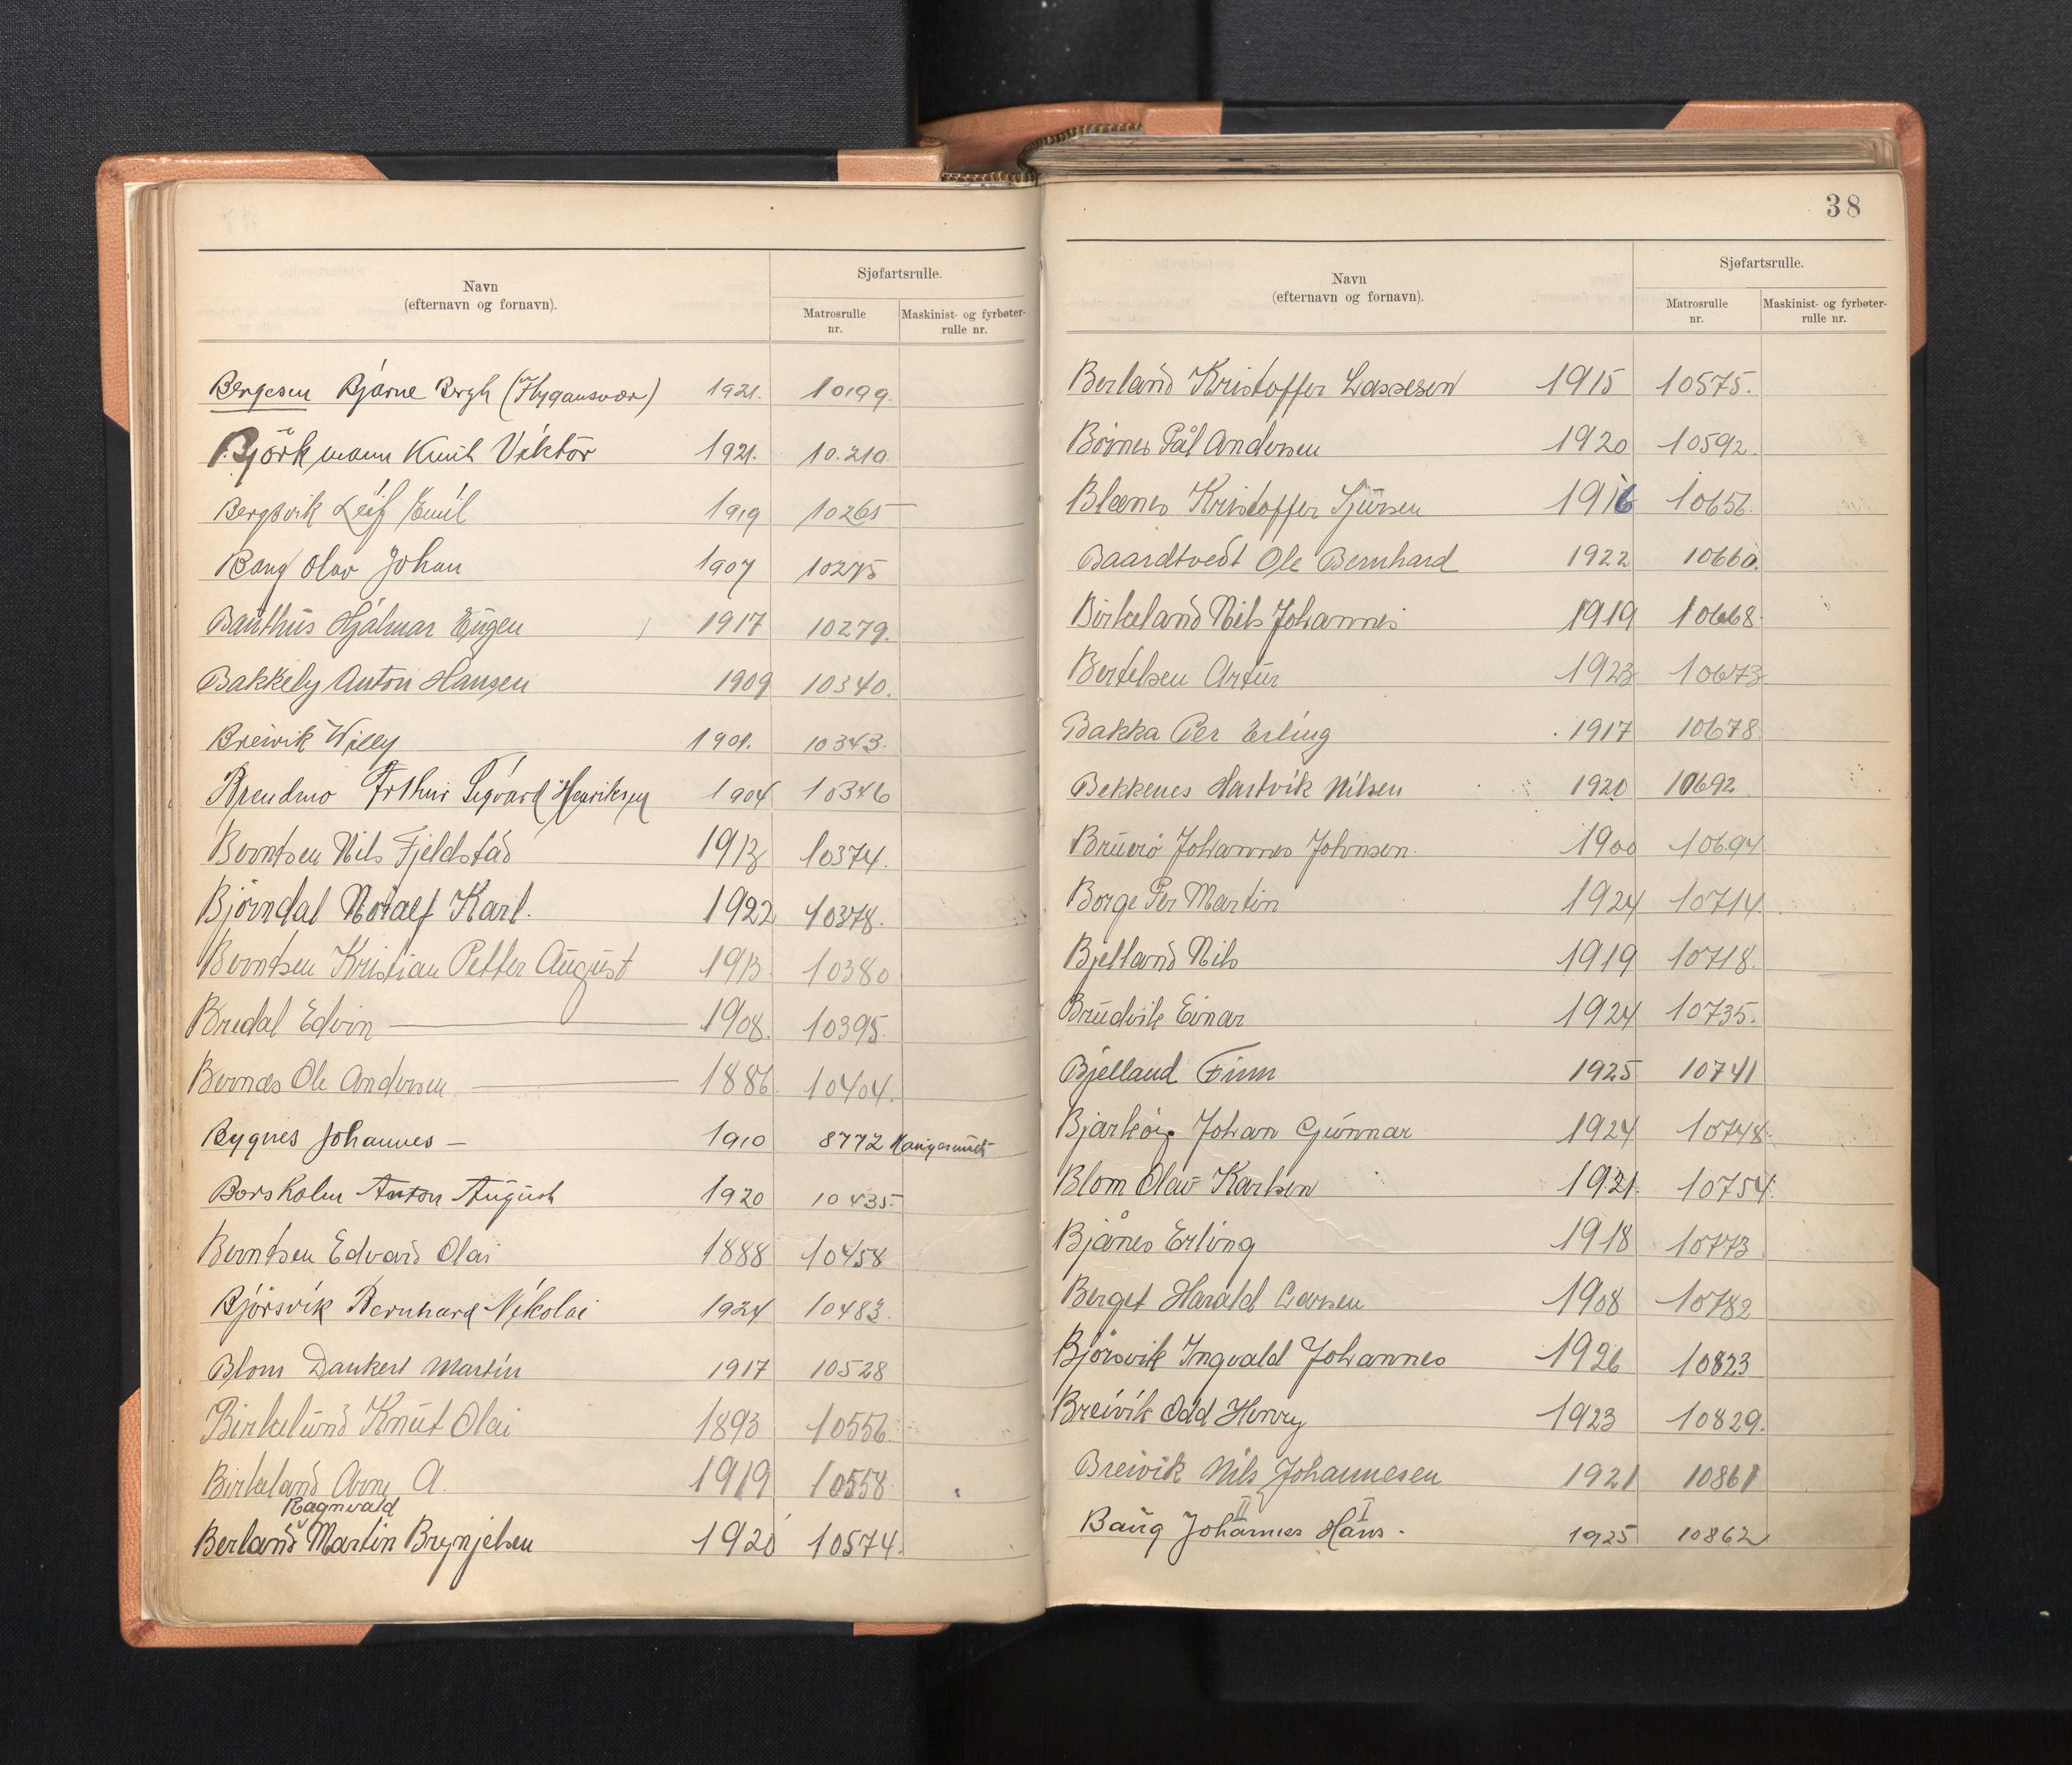 Navn
(efternavn og fornavn).
Sjøfartsrulle.
Matrosrulle
nr.
Maskinist- og fyrbøter-
rulle nr.
Bergesen Bjarne Bergh 1921. 10199.
Björkmann Knut Viktor 1921. 10.210.
Bergsvik Leif Emil 1919 10265
Bang Olav Johan 1907 10275
Bauthus Hjalmar Eugen 1917 10279.
Bakkely Anton Hansen 1909 10340.
Breivik Willy 1901. 10343.
Brendmo Arthur Sigvard Henriksen 1904 10346
Berntsen Nils Fjeldstad 1913 10374.
Bjørndal Notalf Karl. 1922 10378.
Berntsen Kristian Petter August 1913. 10380
Bredal Edvin — 1908. 10395.
Bernes Ole Andersen — 1886. 10404.
Bygnes Johannes — 1910 8772 Haugesund
Borsholm Anton August 1920 10435.
Berntsen Edvard Olai 1888 10458
Bjørsvik Bernhard Nikolai 1924 10483.
Blom Dankert Martin 1917 10528
Birkelund Knut Olai 1893 10556.
Birkeland Arne A. 1919 10558.
Ragnvald
Berland Martin Brynjelsen 1920 10574.
38
Navn
(efternavn og fornavn).
Sjøfartsrulle.
Matrosrulle
nr.
Maskinist- og fyrbøter-
rulle nr.
Berland Kristoffer Lassesen 1915 10575.
Børnes Pål Andersen 1920 10592.
Blænes Kristoffer Sjursen 1916 10656.
Baardtvedt Ole Bernhard 1922 10660.
Birkeland Nils Johannes 1919 10668.
Bertelsen Artur 1923 10673
Bakka Per Erling 1917 10678
Bekkenes Hartvik Nilsen 1920 10692
Bruerø Johannes Johnsen. 1900 10694.
Borge Per Martin 1924 10714
Bjelland Nils 1919 10718.
Brudvik Einar 1924 10735.
Bjelland Finn 1925 10741
Bjarkøy Johan Gunnar 1924 10748.
Blom Olav Karlsen 1921. 10754.
Bjånes Erling 1918 10773
Berget Harald Larsen 1908 10782
Bjørsvik Ingvald Johannes 1926 10823
Breivik Odd Henry 1923 10829.
Breivik Nils Johannesen 1921 10861
II I
Baug Johannes Hans. 1925 10862